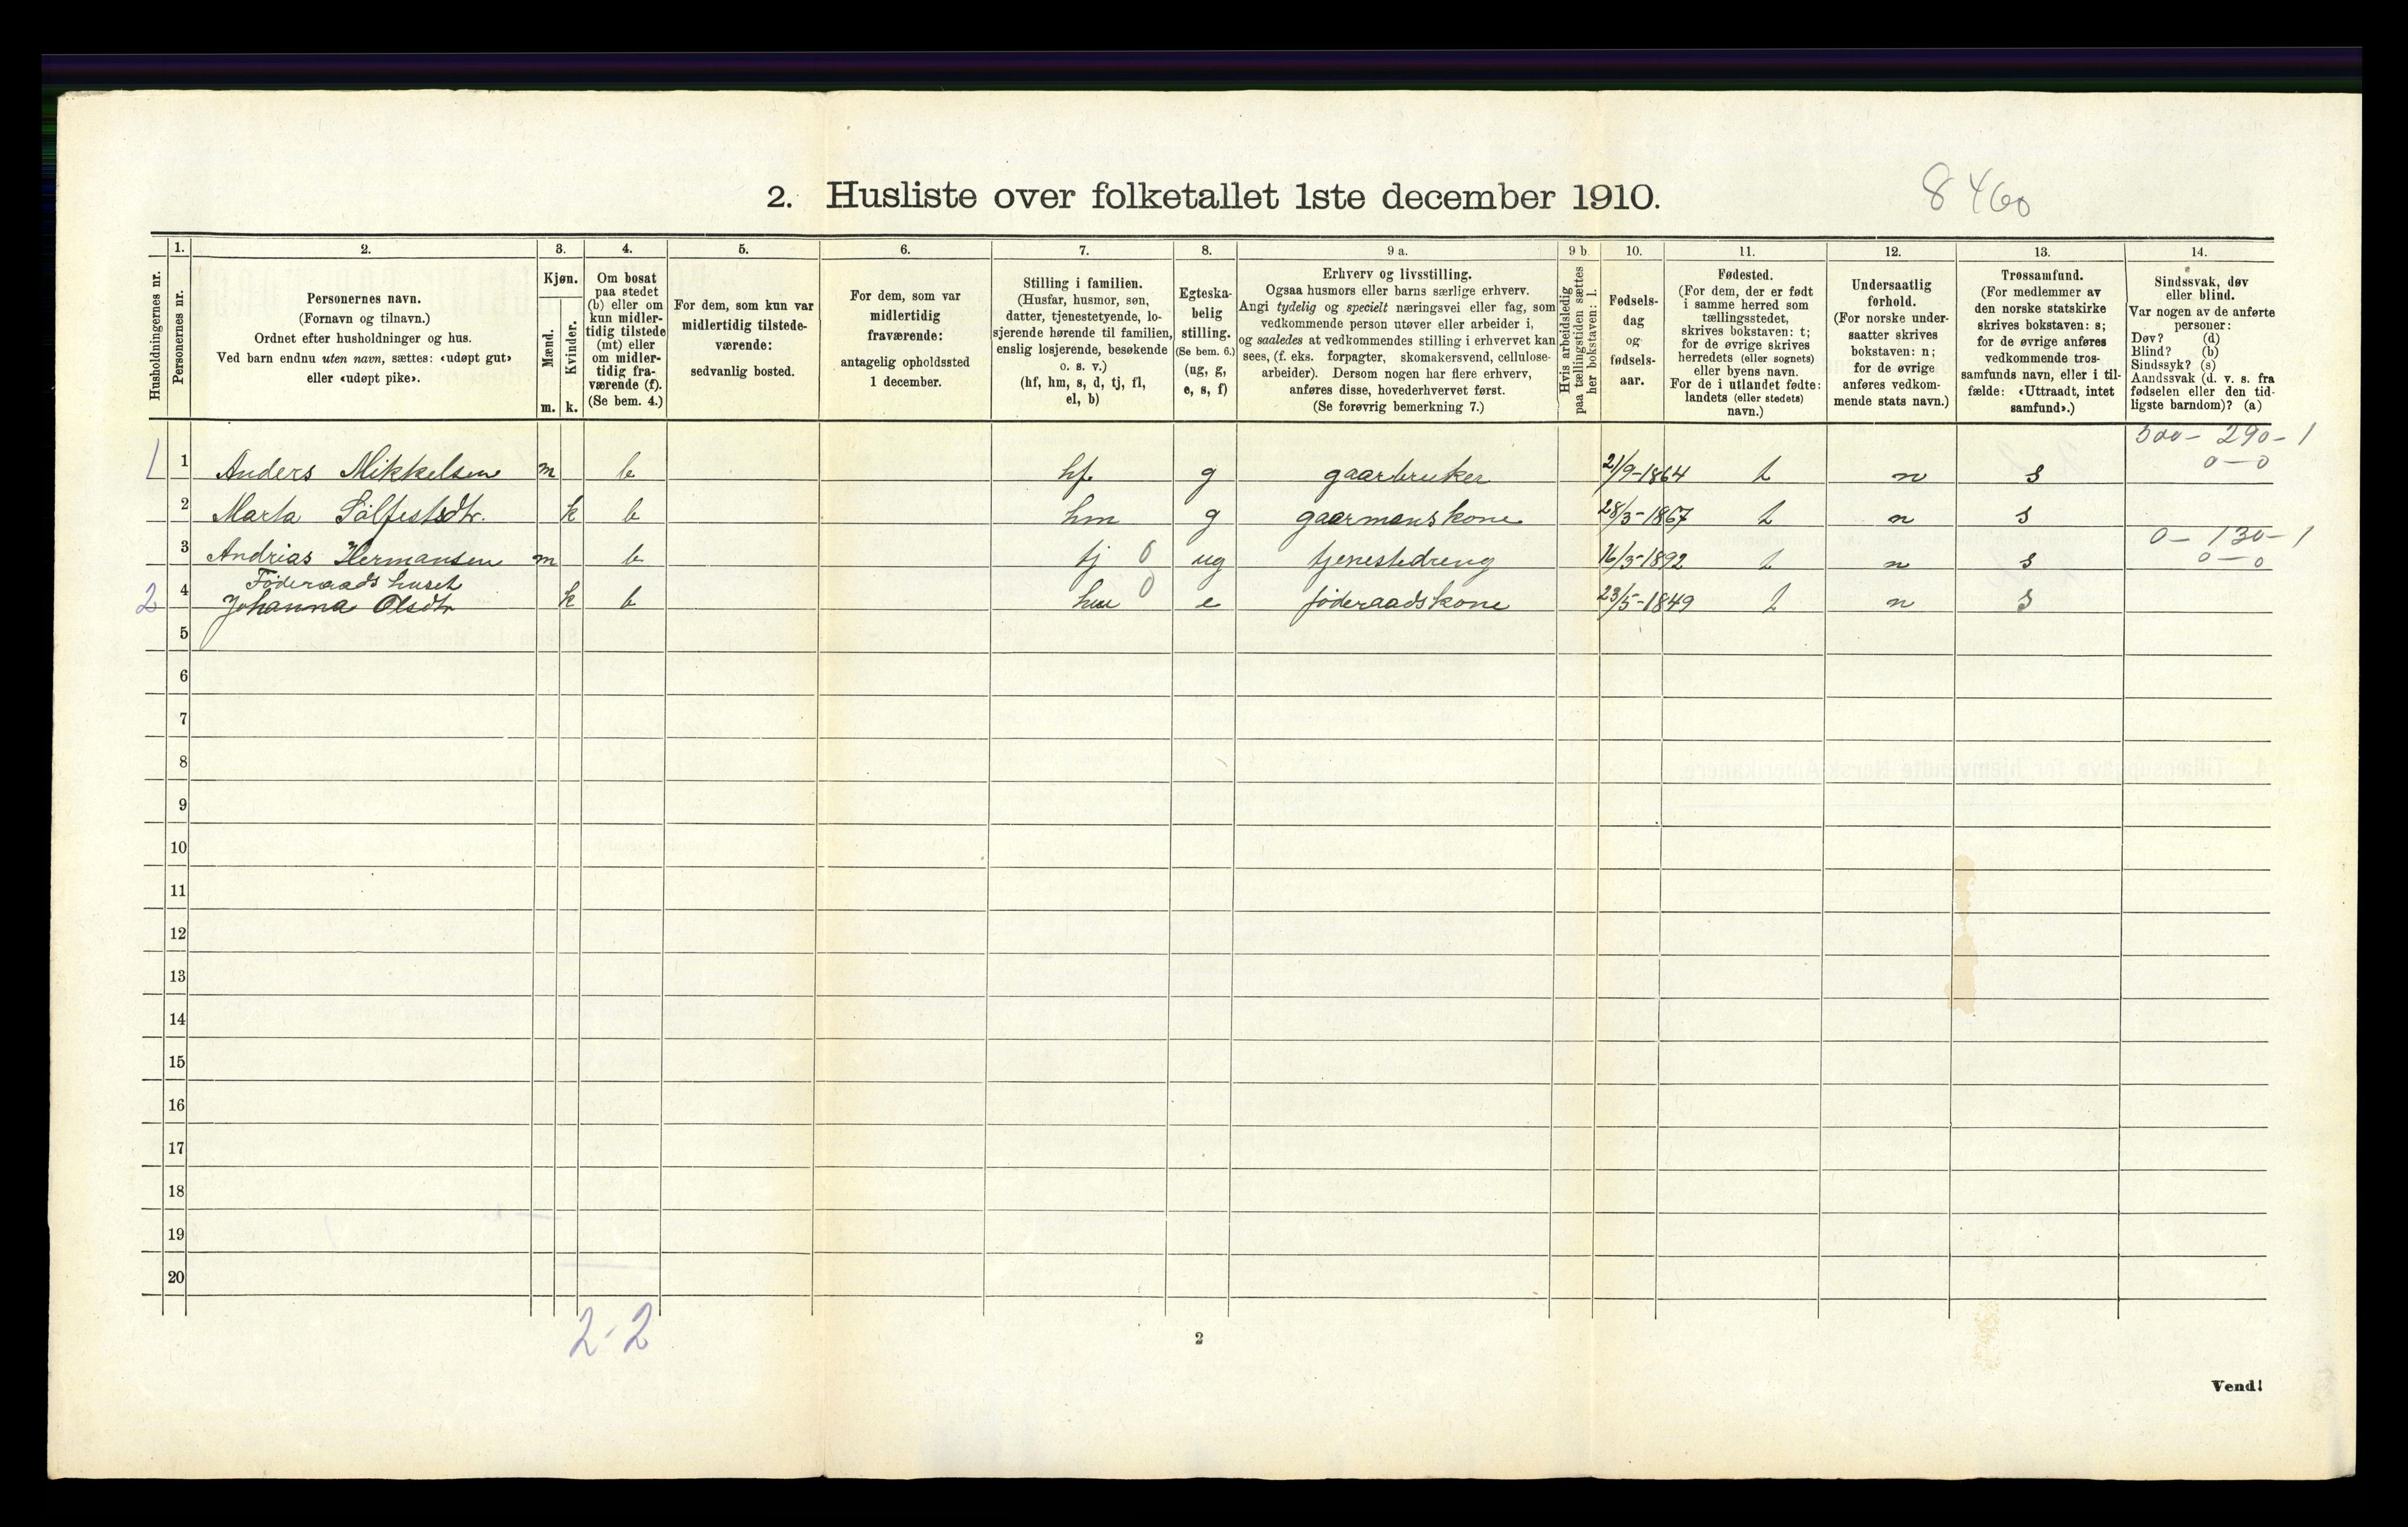 2. Husliste over folketallet 1ste december 1910.
8460
Husholdningernes nr.
1.
Personernes nr.
2.
Personernes navn.
(Fornavn og tilnavn.)
Ordnet efter husholdninger og hus.
Ved barn endnu uten navn, sættes: «udøpt gut»
eller «udøpt pike».
3.
Kjøn.
Mænd.
Kvinder.
m. k.
4.
Om bosat
paa stedet
(b) eller om
kun midler-
tidig tilstede
(mt) eller
om midler-
tidig fra-
værende (f).
(Se bem. 4.)
5.
For dem, som kun var
midlertidig tilstede-
værende:
sedvanlig bosted.
6.
For dem, som var
midlertidig
fraværende:
antagelig opholdssted
1 december.
7.
Stilling i familien.
(Husfar, husmor, søn,
datter, tjenestetyende, lo-
sjerende hørende til familien,
enslig losjerende, besøkende
o. s. v.)
(hf, hm, s, d, tj, fl,
el, b)
8.
Egteska-
belig
stilling.
(Se bem. 6.)
(ug, g,
e, s, f)
9 a.
Erhverv og livsstilling.
Ogsaa husmors eller barns særlige erhverv.
Angi tydelig og specielt næringsvei eller fag, som
vedkommende person utøver eller arbeider i,
og saaledes at vedkommendes stilling i erhvervet kan
sees, (f. eks. forpagter, skomakersvend, cellulose-
arbeider). Dersom nogen har flere erhverv,
anføres disse, hovederhvervet først.
(Se forøvrig bemerkning 7.)
9 b.
Hvis arbeidsledig
paa tællingstiden sættes
her bokstaven: l.
10.
Fødsels-
dag
og
fødsels-
aar.
11.
Fødested.
(For dem, der er født
i samme herred som
tællingsstedet,
skrives bokstaven: t;
for de øvrige skrives
herredets (eller sognets)
eller byens navn.
For de i utlandet fødte:
landets (eller stedets)
navn.)
12.
Undersaatlig
forhold.
(For norske under-
saatter skrives
bokstaven: n;
for de øvrige
anføres vedkom-
mende stats navn.)
13.
Trossamfund.
(For medlemmer av
den norske statskirke
skrives bokstaven: s;
for de øvrige anføres
vedkommende tros-
samfunds navn, eller i til-
fælde: «Uttraadt, intet
samfund».)
14.
Sindssvak, døv
eller blind.
Var nogen av de anførte
personer:
Døv? (d)
Blind? (b)
Sindssyk? (s)
Aandssvak (d. v. s. fra
fødselen eller den tid-
ligste barndom)? (a)
500 - 290 - 1
0 - 0
1 1 Anders Mikkelsen m b hf. g gaarbruker 21/9-1864 t n s
2 Marta Sølfestsdtr. k b hm g gaarmanskone 28/3-1867 t n s
0 - 130 - 1
0 - 0
3 Andrias Hermansen m b tj 0 ug tjenestedreng 16/3-1892 t n s
Føderaadshuset
2 4 Johanna Olsdtr k b hm 0 e føderaadskone 23/5-1849 t n s
5
6
7
8
9
10
11
12
13
14
15
16
17
18
19
20
2-2
2
Vend!